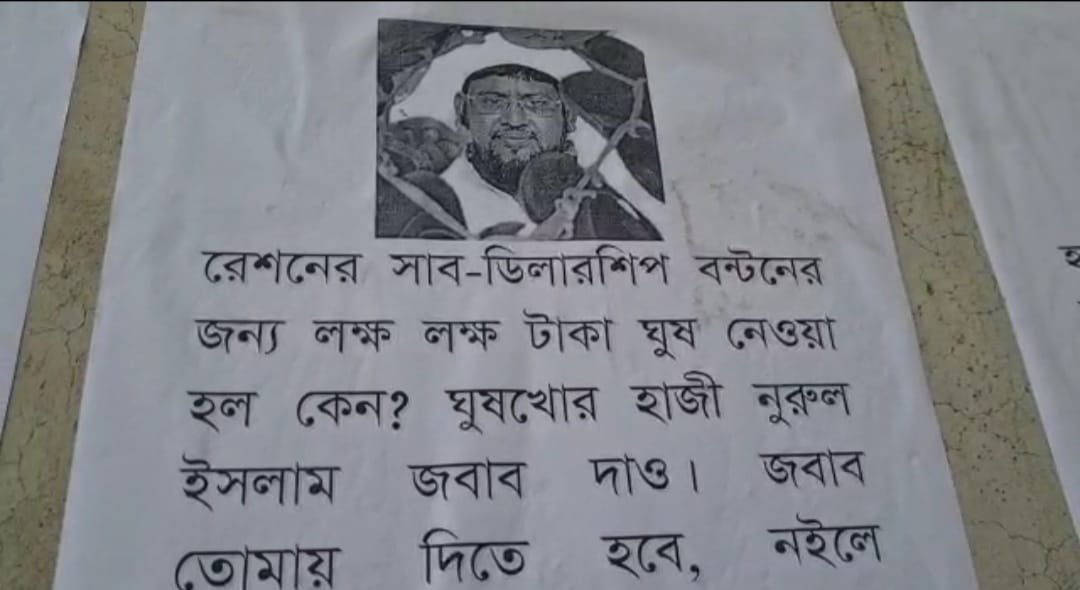 রেশনের সাব-ডিলারশিপ বন্টনের
জন্য লক্ষ লক্ষ টাকা ঘুষ নেওয়া
হল কেন? ঘুষখোর হাজী নুরুল
ইসলাম জবাব দাও। জবাব
তোমায় দিতে হবে, নইলে